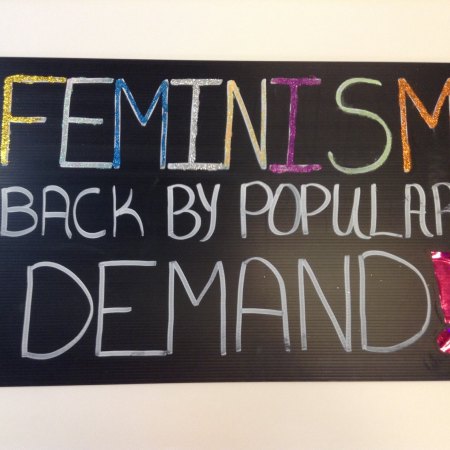 FEMINISM
BACK BY POPULAR
DEMAND!